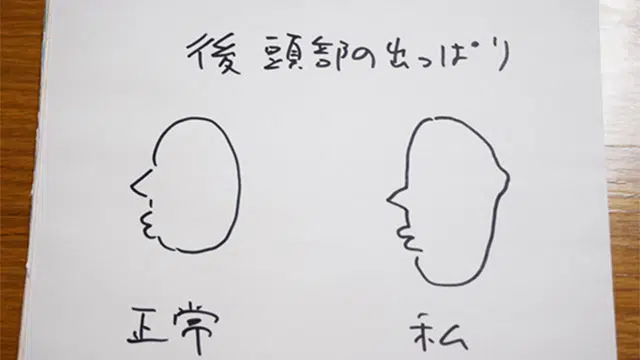 後頭部の出っぱり
正常
私